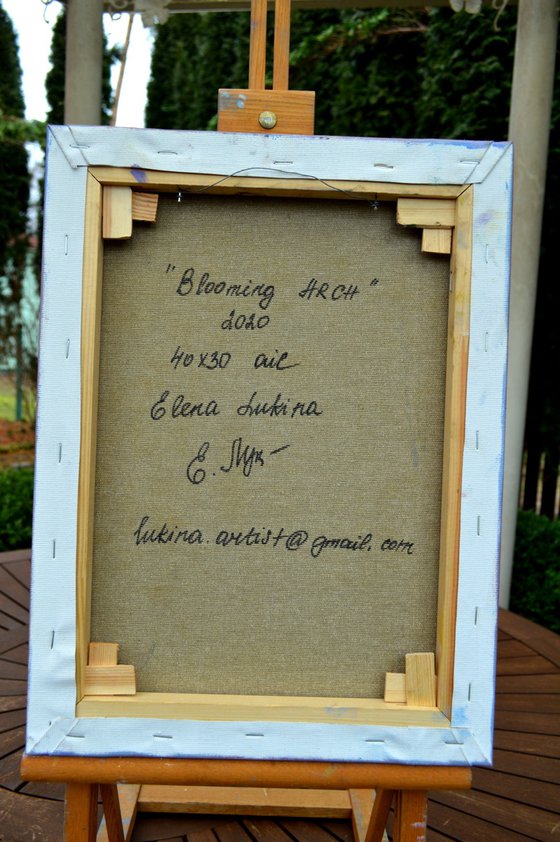 "Blooming ARCH"
2020
40x30 oil
Elena Lukina
Е. Лук
lukina.artist@gmail.com